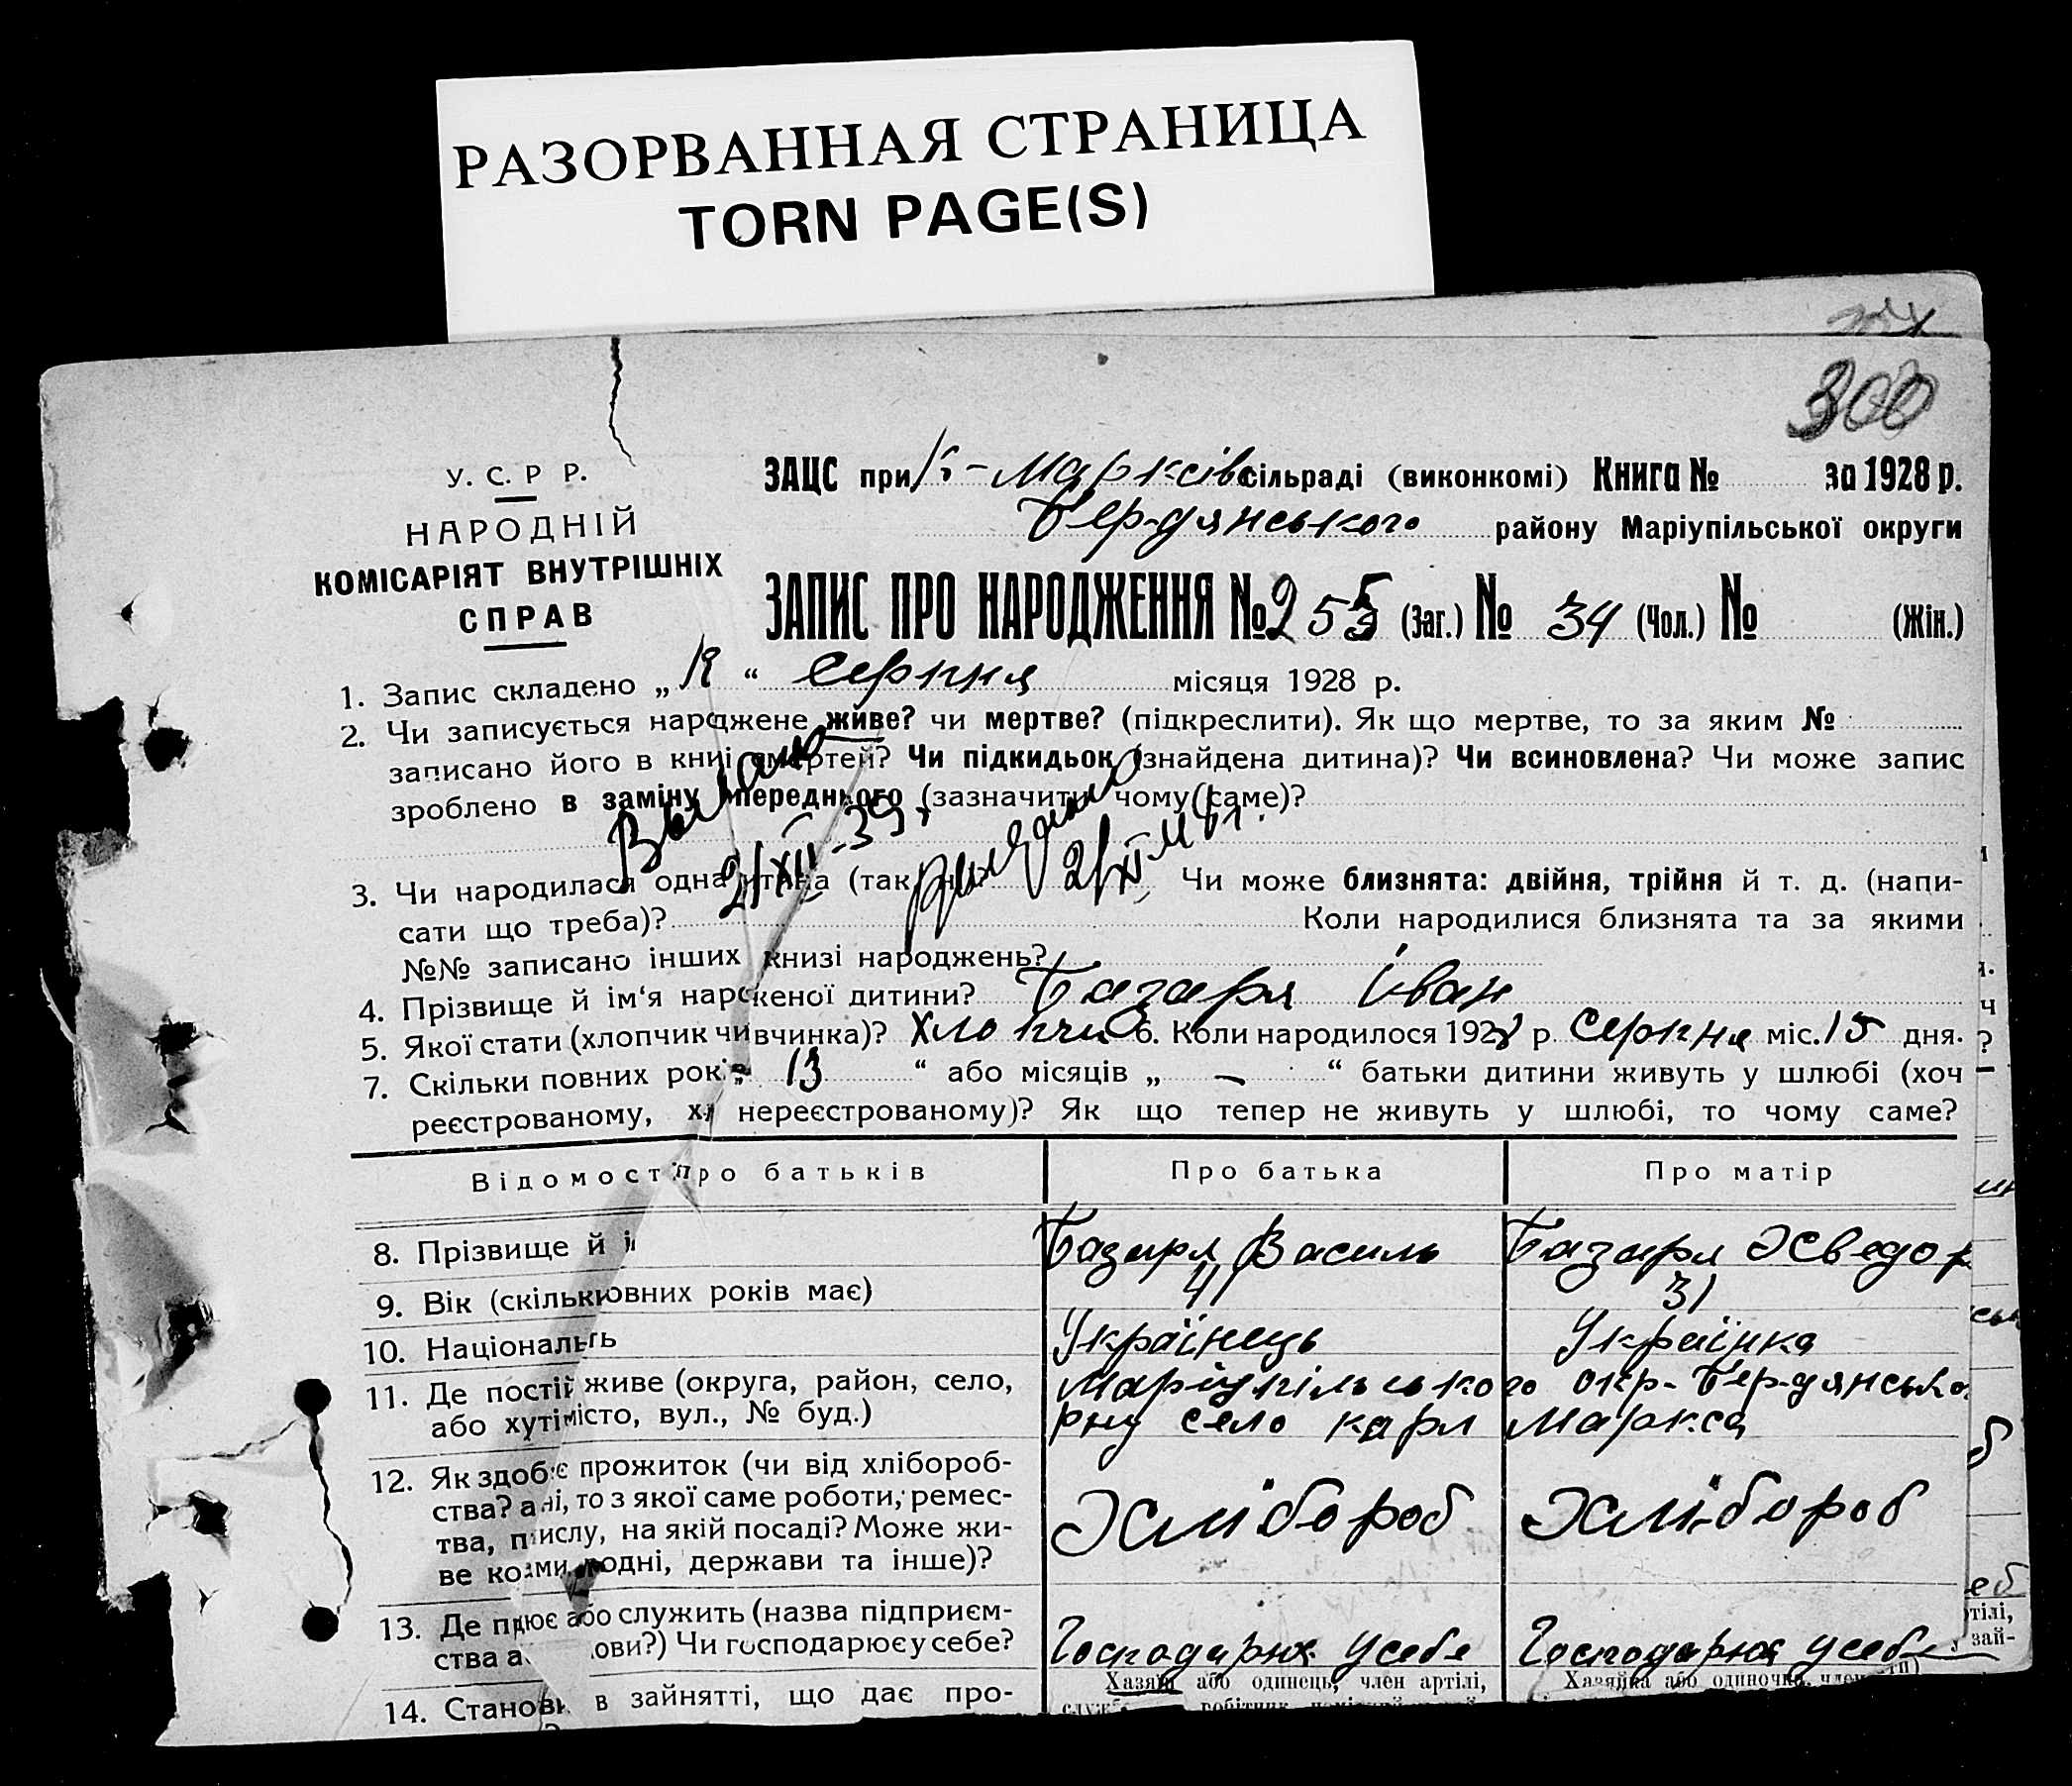 РАЗОРВАННАЯ СТРАНИЦА
TORN PAGE(S)
300
У. С. Р Р.
НАРОДНІЙ
КОМІСАРІЯТ ВНУТРІШНІХ
СПРАВ
ЗАЦС при К-Марксів сільраді (виконкомі) Книга № за 1928 р.
Бер-дянського району Маріупільської округи
ЗАПИС ПРО НАРОДЖЕННЯ № 255 (Заг.) № 34 (Чол.) № (Жін.)
1. Запис складено „ “ Серпня місяця 1928 р.
2. Чи записується народжене живе? чи мертве? (підкреслити). Як що мертве, то за яким №
записано його в книзі смертей? Чи підкидьок (знайдена дитина)? Чи всиновлена? Чи може запис
зроблено в заміну попереднього (зазначити чому саме)?
21/XII-39
3. Чи народилася одна (так, Чи може близнята: двійня, трійня й т. д. (напи-
сати що треба)? Коли народилися близнята та за якими
№№ записано інших книзі народжень?
4. Прізвище й ім‘я нар женої дитини? Базаря Іван
5. Якої стати (хлопчик чи вчинка)? Хлопчик 6. Коли народилось 1928 р. Серпня міс. 15 дня.
7. Скільки повних рок „ 13 “ або місяців „ — “ батьки дитини живуть у шлюбі (хоч
реєстрованому, х нереєстрованому)? Як що тепер не живуть у шлюбі, то чому саме?
Відомост про батьків Про батька Про матір
8. Прізвище й і Базаря Василь Базаря Хведор
9. Вік (скільки овних років має) 41 31
10. Національ ть Українець Українка
11. Де постій живе (округа, район, село, Маріупільського окр. Бер-дянсько
або хуті місто, вул., № буд.) рну село карл Маркса
12. Як здоб є прожиток (чи від хлібороб-
ства? а ні, то з якої саме роботи, ремес-
тва, п ислу, на якій посаді? Може жи-
ве ко ми родні, держави та інше)? Хлібороб Хлібороб
13. Де п ює або служить (назва підприєм-
ства а ови?) Чи господарює у себе? Господарює усебе Господарює усебе
14. Станови в зайнятті, що дає про-
Хазяїн або одинець, член артілі,
Хазяйка або одиночка, член